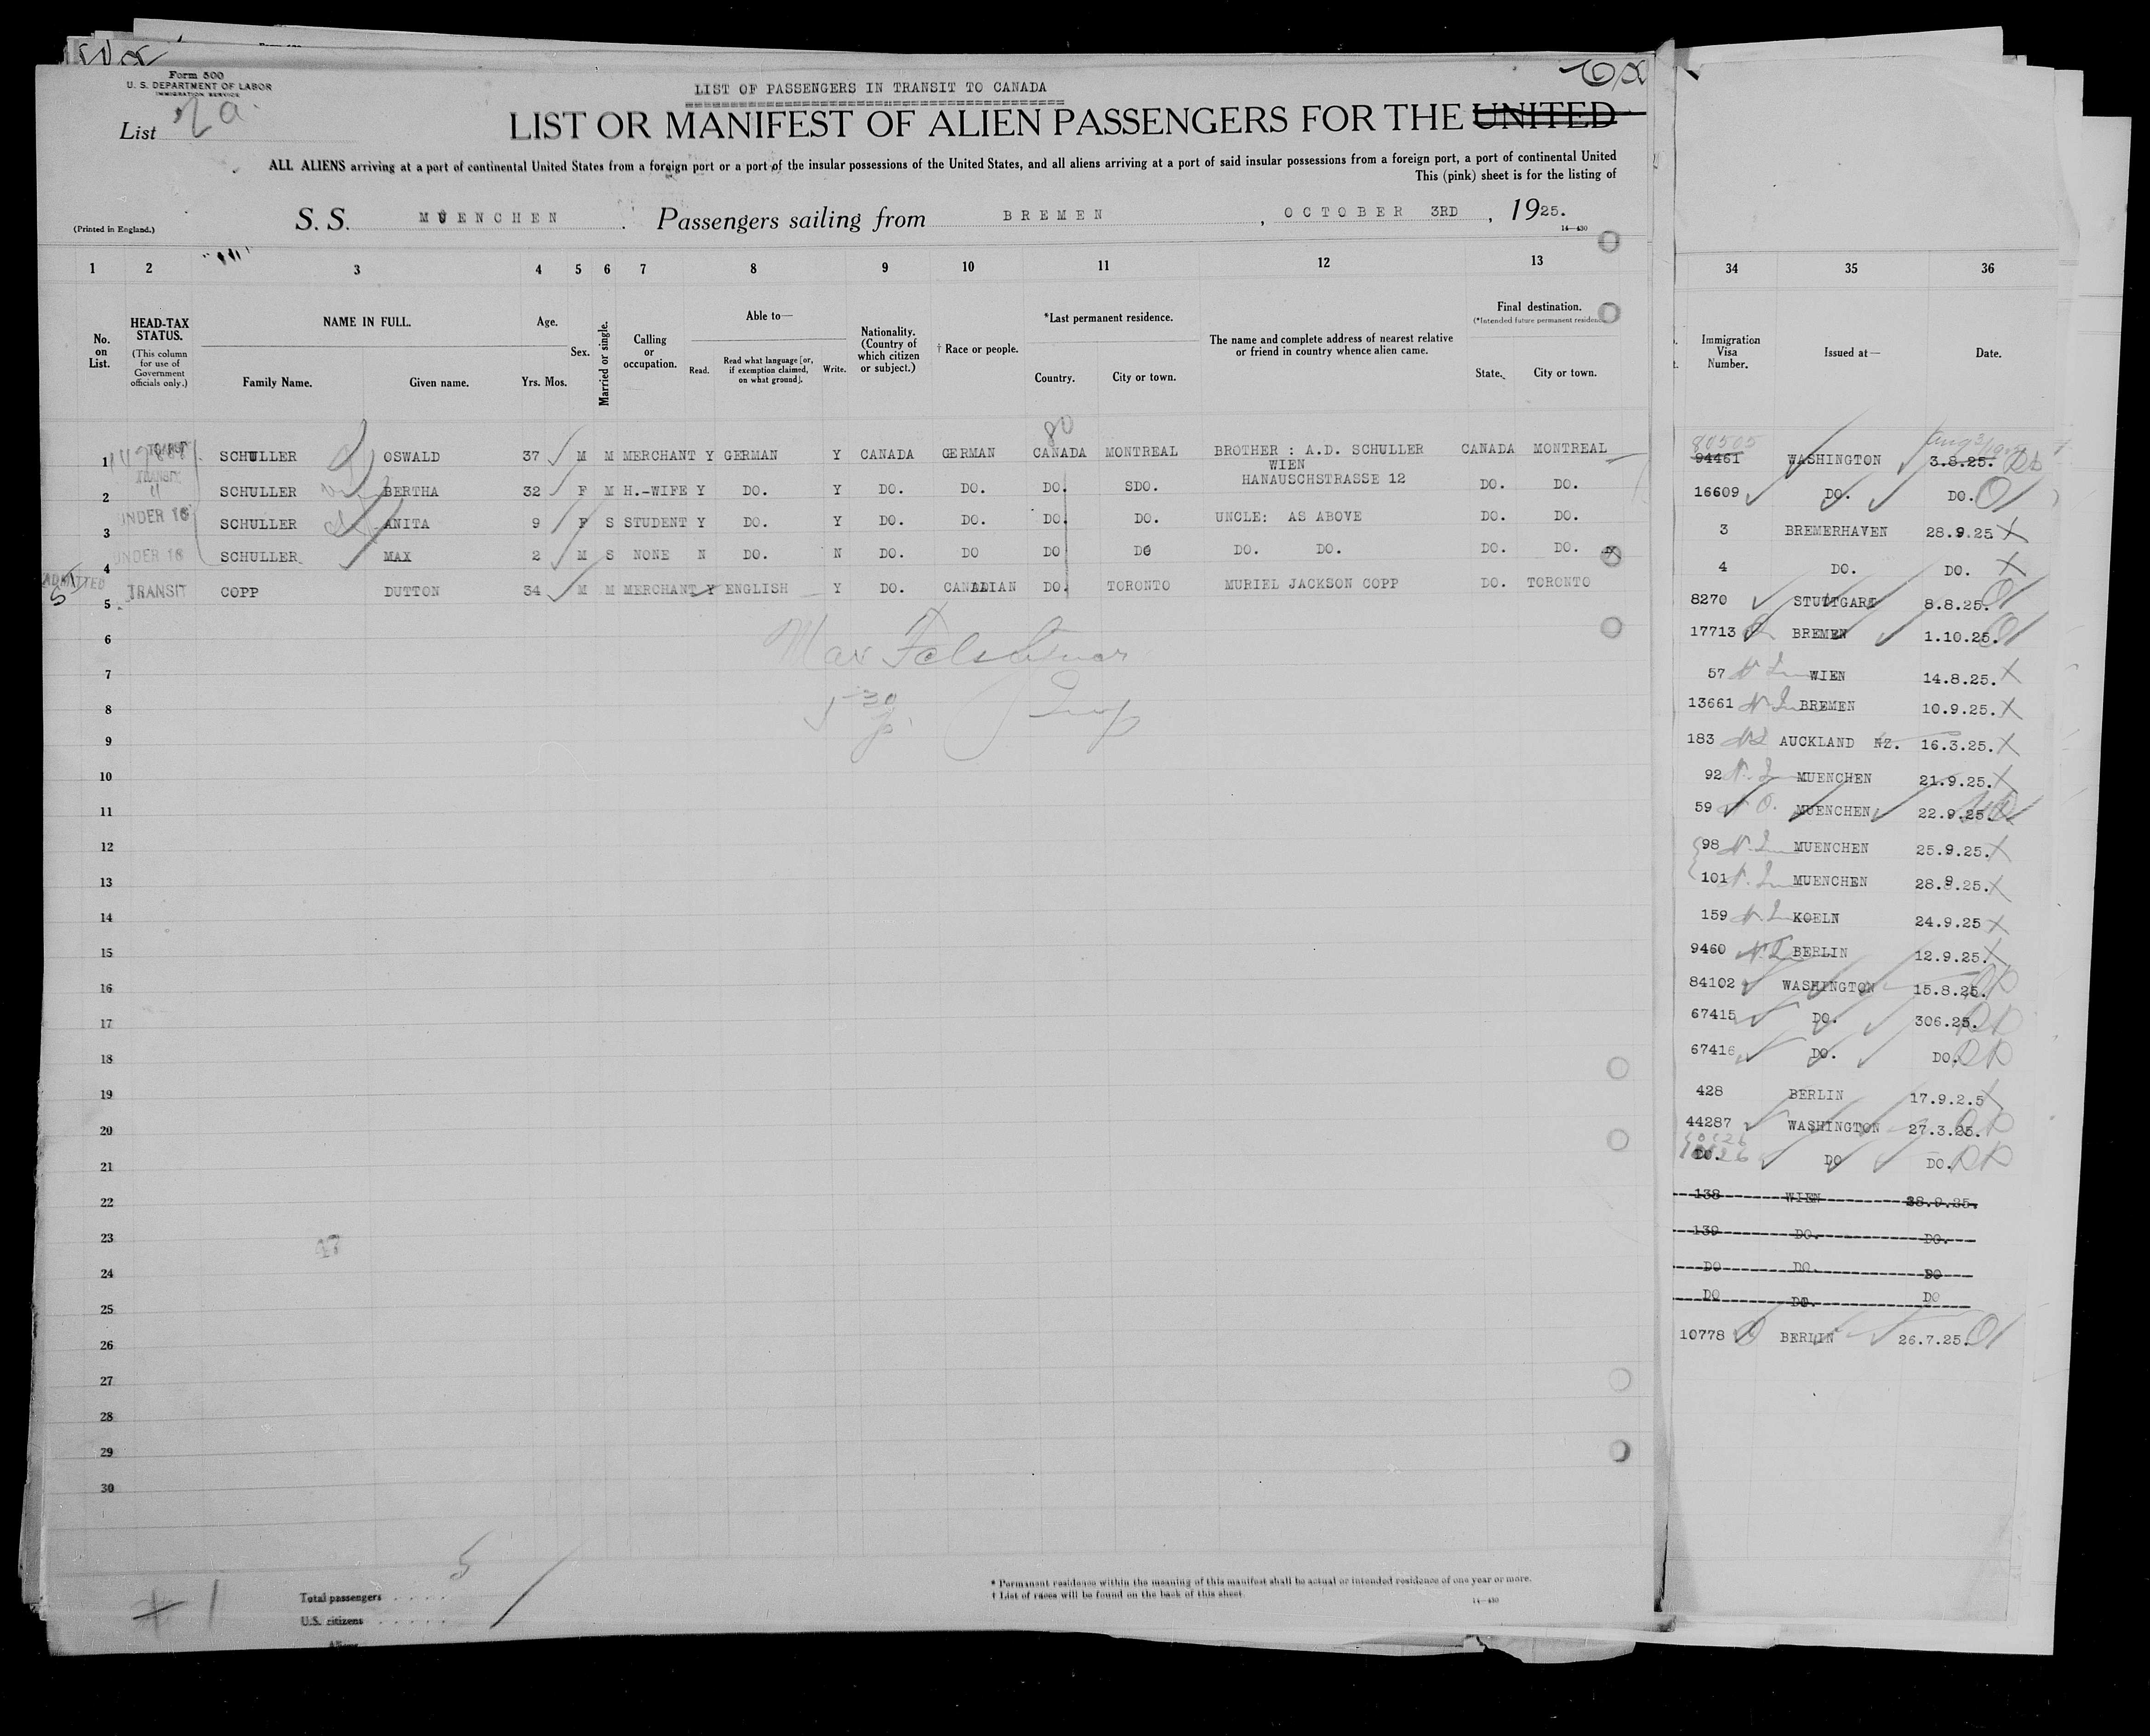 Form 500
U. S. DEPARTMENT OF LABOR
IMMIGRATION SERVICE
List
LIST OF PASSENGERS IN TRANSIT TO CANADA
LIST OR MANIFEST OF ALIEN PASSENGERS FOR THE UNITED
ALL ALIENS arriving at a port of continental United States from a foreign port or a port of the insular possessions of the United States, and all aliens arriving at a port of said insular possessions from a foreign port, a port of continental United
This (pink) sheet is for the listing of
(Printed in England.)
S. S. MUENCHEN . Passengers sailing from BREMEN , OCTOBER 3RD , 1925.
14—430
1 2 3 4 5 6 7 8 9 10 11 12 13
No. on List.
HEAD-TAX STATUS.
(This column for use of Government officials only.)
NAME IN FULL.
Family Name. Given name.
Age.
Yrs. Mos.
Sex.
Married or single.
Calling or occupation.
Able to—
Read. Read what language [or, if exemption claimed, on what ground]. Write.
Nationality. (Country of which citizen or subject.)
† Race or people.
*Last permanent residence.
Country. City or town.
The name and complete address of nearest relative or friend in country whence alien came.
Final destination.
(*Intended future permanent residence
State. City or town.
80
1 TRANSIT SCHULLER OSWALD 37 M M MERCHANT Y GERMAN Y CANADA GERMAN CANADA MONTREAL BROTHER : A.D. SCHULLER CANADA MONTREAL
WIEN
2 TRANSIT SCHULLER BERTHA 32 F M H.-WIFE Y DO. Y DO. DO. DO. SDO. HANAUSCHSTRASSE 12 DO. DO.
3 UNDER 16 SCHULLER ANITA 9 F S STUDENT Y DO. Y DO. DO. DO. DO. UNCLE: AS ABOVE DO. DO.
4 UNDER 16 SCHULLER MAX 2 M S NONE N DO. N DO. DO DO DO DO. DO. DO. DO.
ADMITTED
5 TRANSIT COPP DUTTON 34 M M MERCHANT Y ENGLISH Y DO. CANADIAN DO. TORONTO MURIEL JACKSON COPP DO. TORONTO
6
7
8
9
10
11
12
13
14
15
16
17
18
19
20
21
22
23
24
25
26
27
28
29
30
5
Total passengers . . . . .
U.S. citizens . . . . . .
* Permanent residence within the meaning of this manifest shall be actual or intended residence of one year or more.
† List of races will be found on the back of this sheet.
14—430
34 35 36
Immigration Visa Number.
Issued at—
Date.
80505
94461 WASHINGTON 3.8.25.
16609 DO. DO.
3 BREMERHAVEN 28.9.25
4 DO. DO.
8270 STUTTGART 8.8.25.
17713 BREMEN 1.10.25.
57 WIEN 14.8.25.
13661 BREMEN 10.9.25.
183 AUCKLAND NZ. 16.3.25.
92 MUENCHEN 21.9.25.
59 MUENCHEN 22.9.25
98 MUENCHEN 25.9.25.
101 MUENCHEN 28.9.25.
159 KOELN 24.9.25
9460 BERLIN 12.9.25.
84102 WASHINGTON 15.8.25.
67415 DO. 306.25.
67416 DO. DO.
428 BERLIN 17.9.2.5
44287 WASHINGTON 27.3.25.
DO. DO DO.
138 WIEN 28.9.25.
139 DO. DO.
DO DO. DO
DO DO. DO
10778 BERLIN 26.7.25.